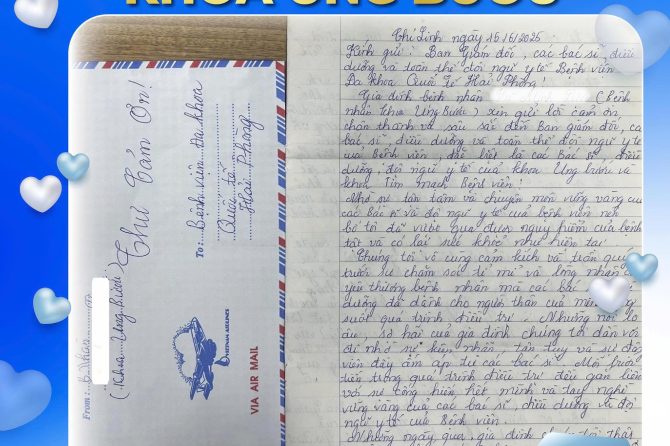 KHOA UNG BƯỚU
Thư Cảm Ơn!
From: B. Nhân
(Khoa Ung Bướu)
To: Bệnh viện Đa khoa
Quốc tế
Hải Phòng
VIETNAM AIRLINES
VIA AIR MAIL
Chí Linh ngày 15/6/2025.
Kính gửi: Ban Giám đốc, các bác sĩ, điều
dưỡng và toàn thể đội ngũ y tế Bệnh viện
Đa khoa Quốc Tế Hải Phòng
Gia đình bệnh nhân (Bệnh
nhân Khoa Ung Bướu) xin gửi lời cảm ơn
chân thành và sâu sắc đến Ban giám đốc, các
bác sĩ, điều dưỡng và toàn thể đội ngũ y tế
của Bệnh viện đặc biệt là các Bác sĩ, điều
dưỡng, đội ngũ y tế của khoa Ung bướu và
khoa Tim mạch Bệnh viện!
Nhờ sự tận tâm và chuyên môn vững vàng của
các bác sĩ và đội ngũ y tế của bệnh viện nên
bố tôi đã vượt qua được nguy hiểm của bệnh
tật và có lại sức khỏe như hiện tại
Chúng tôi vô cùng cảm kích và trân quý
trước sự chăm sóc tỉ mỉ và lòng nhân ái
yêu thương bệnh nhân mà các bác sĩ
dưỡng đã dành cho người thân của mình
suốt quá trình điều trị. Những nỗi lo
âu, sợ hãi của gia đình chúng tôi dần vơi
đi nhờ sự kiên nhẫn, tận tụy và sự động
viên đầy ấm áp từ các bác sĩ. Mỗi bước
tiến trong quá trình điều trị đều gắn liền
với sự cống hiến hết mình và tay nghề
vững vàng của các bác sĩ, điều dưỡng và đội
ngũ y tế của Bệnh viện
Những ngày qua, gia đình